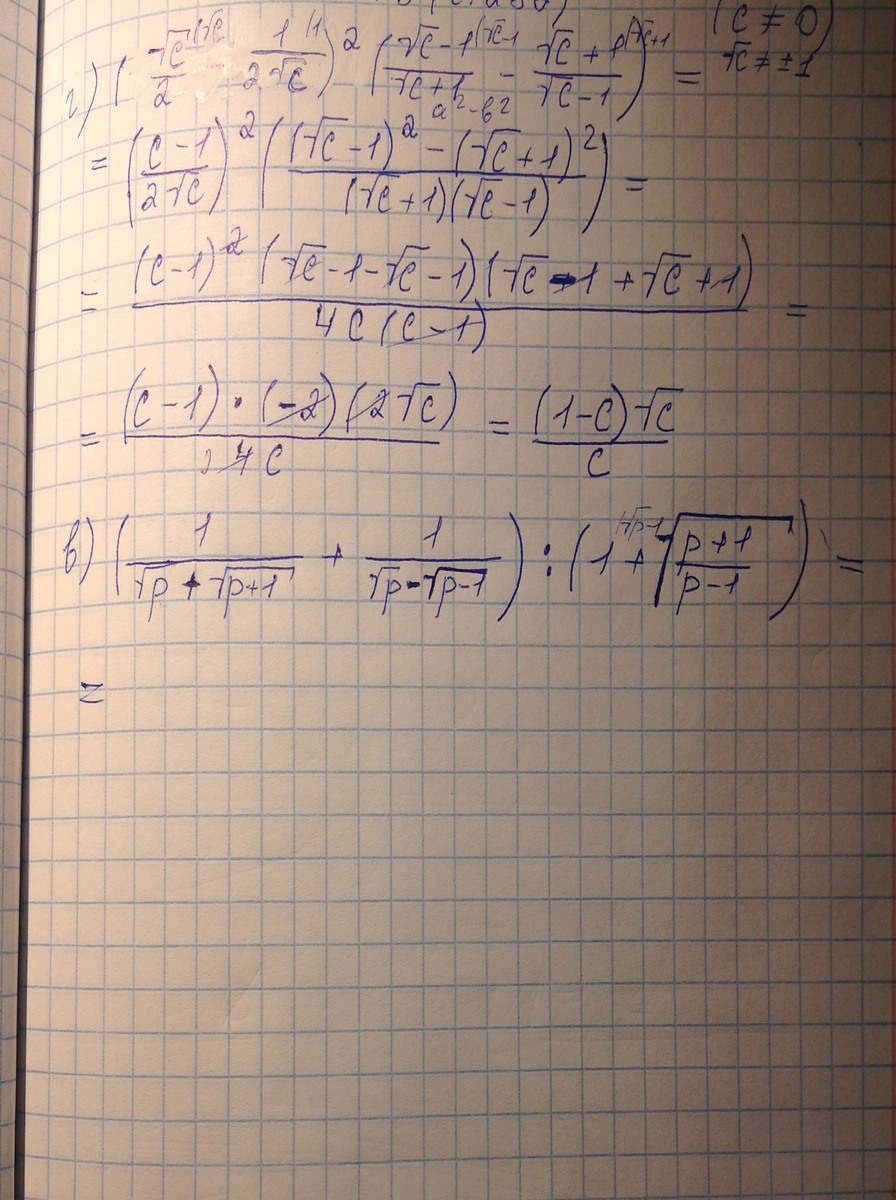 (c ≠ 0)
√c ≠ ±1
г) (√c/2 - 1/(2√c))² ((√c-1)/(√c+1) - (√c+1)/(√c-1)) =
a²-b²
= ((c-1)/(2√c))² (((√c-1)² - (√c+1)²)/((√c+1)(√c-1))) =
= ((c-1)² (√c-1-√c-1)(√c-1+√c+1))/(4c(c-1)) =
= ((c-1)·(-2)(2√c))/(4c) = ((1-c)√c)/c
в) (1/(√p + √(p+1)) + 1/(√p - √(p-1))) : (1 + √((p+1)/(p-1))) =
=